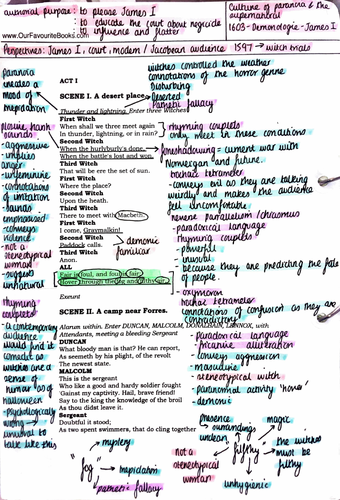 authorial purpose: to please James I
: to educate the court about regicide
: to influence and flatter
www.OurFavouriteBooks.com
Culture of paranoia & the
supernatural
1603 - Demonologie - James I
Perspectives: James I, court, modern / Jacobean audience 1597 → witch trials
paranoia
creates a
mood of
trepidation
ACT I
SCENE I. A desert place.
Thunder and lightning. Enter three Witches
witches controlled the weather
connotations of the horror genre
Disturbing
Deserted
Pathetic fallacy
First Witch
When shall we three meet again
In thunder, lightning, or in rain?
Second Witch
When the hurlyburly's done,
When the battle's lost and won.
Third Witch
That will be ere the set of sun.
First Witch
Where the place?
Second Witch
Upon the heath.
Third Witch
There to meet with Macbeth.
First Witch
I come, Graymalkin!
Second Witch
Paddock calls.
Third Witch
Anon.
ALL
Fair is foul, and foul is fair:
Hover through the fog and filthy air.
Exeunt
rhyming couplets
only meet in these conditions
foreshadowing = current war with
Norwegian and future.
trochaic tetrameter
- conveys evil as they are talking
weirdly and makes the audience
feel uncomfortable
reverse parallelism / chiasmus
- paradoxical language
rhyming couplets
- powerful
- unusual
- because they are predicting the fate
of people.
- oxymoron
trochaic tetrameter
connotations of confusion as they are
contradictory
demonic
familiar
plosive harsh
sounds
- aggressive
- implies
anger
- unfeminine
- connotations
of imitation
- sounds
emphasised
- conveys
violence
- not a
stereotypical
woman
- suggests
unnatural
rhyming
couplets
- a contemporary
audience
would find it
comical as
witches are a
sense of
humour (as of
halloween
- psychologically
wrong →
unusual to
talk like this
SCENE II. A camp near Forres.
Alarum within. Enter DUNCAN, MALCOLM, DONALBAIN, LENNOX, with
Attendants, meeting a bleeding Sergeant
DUNCAN
What bloody man is that? He can report,
As seemeth by his plight, of the revolt
The newest state.
MALCOLM
This is the sergeant
Who like a good and hardy soldier fought
'Gainst my captivity. Hail, brave friend!
Say to the king the knowledge of the broil
As thou didst leave it.
Sergeant
Doubtful it stood;
As two spent swimmers, that do cling together
- Paradoxical language
- fricative alliteration
- conveys aggression
- masculine
- stereotypical witch
- paranormal activity 'hover'
- demonic
"fog"
mystery
trepidation
pathetic fallacy
"filthy"
presence
surroundings
unclean
magic
the witches
must be
filthy
unhygienic
not a
stereotypical
woman